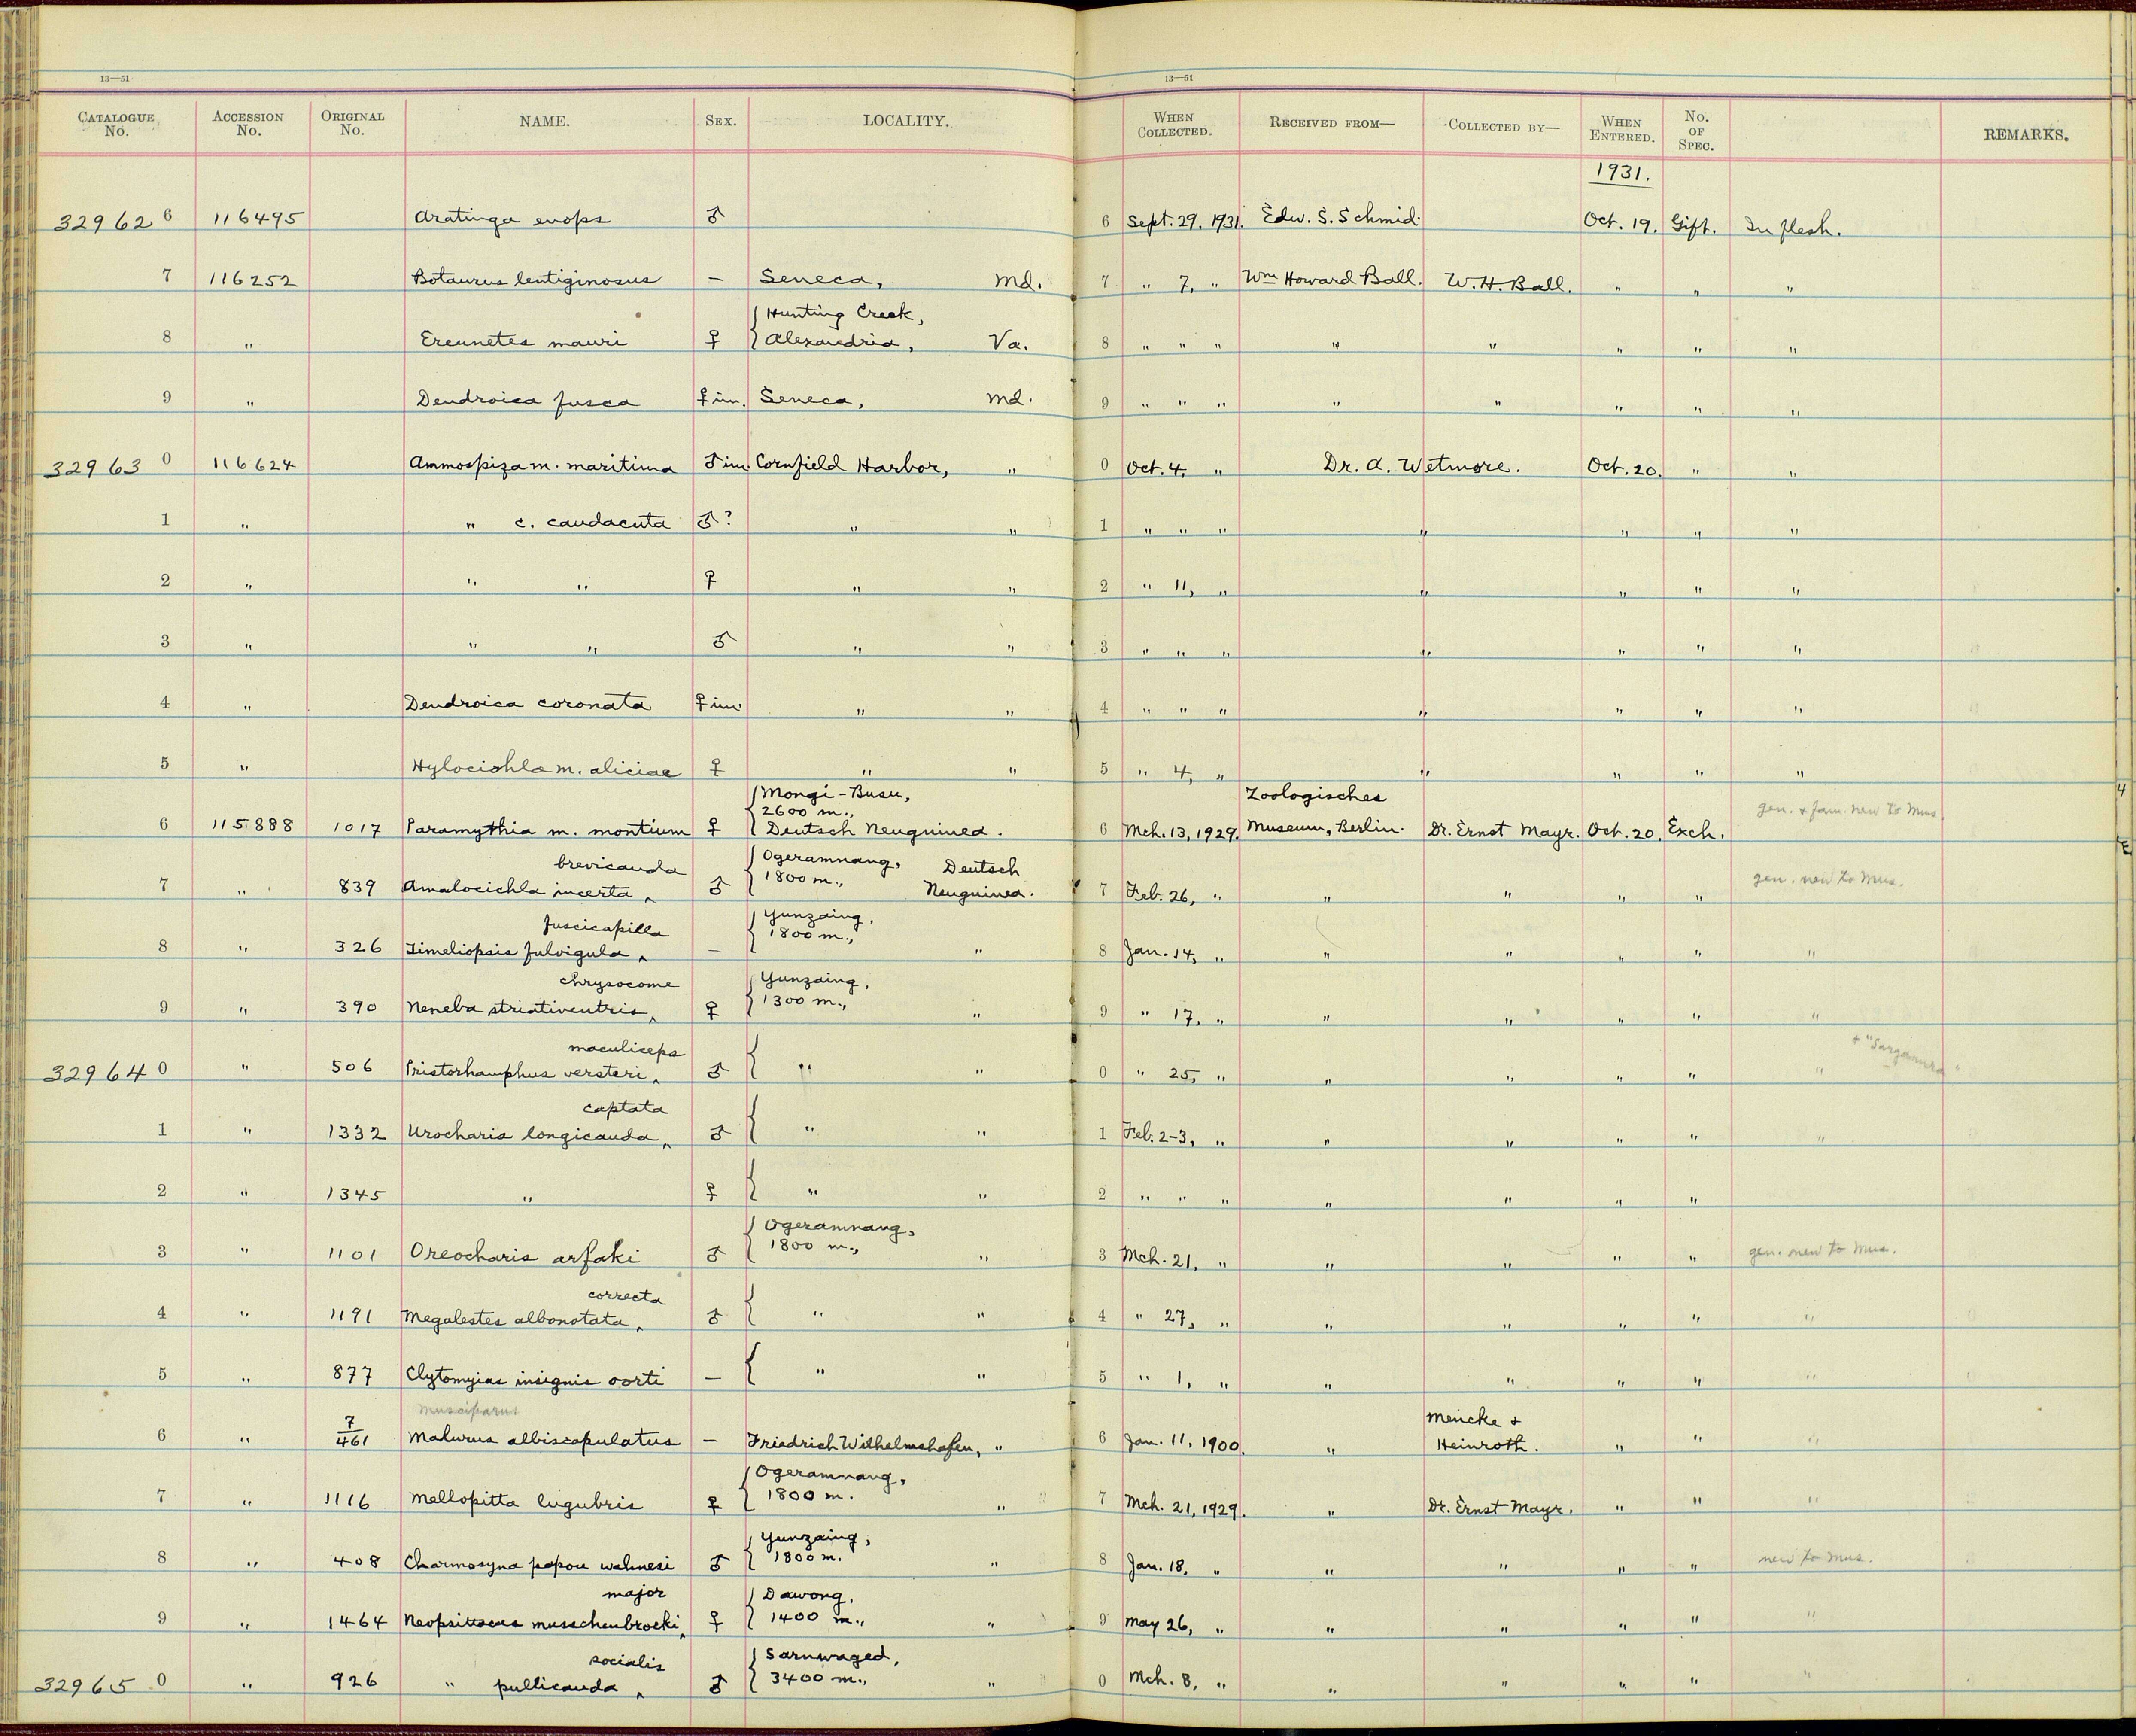 13—51 13—51
CATALOGUE No. ACCESSION No. ORIGINAL No. NAME. SEX. LOCALITY. WHEN COLLECTED. RECEIVED FROM— COLLECTED BY— WHEN ENTERED. No. OF SPEC. REMARKS.
1931.
32962 6 116495 Aratinga euops ♂ 6 Sept. 29, 1931. Edw. S. Schmid. Oct. 19. Gift. In flesh.
7 116252 Botaurus lentiginosus — Seneca, Md. 7 " 7, " Wm Howard Ball. W. H. Ball. " " "
Hunting Creek,
8 " Ereunetes mauri ♀ Alexandria, Va. 8 " " " " " " " "
9 " Dendroica fusca ♀ im. Seneca, Md. 9 " " " " " " " "
32963 0 116624 Ammospiza m. maritima ♂ im. Cornfield Harbor, " 0 Oct. 4, " Dr. A. Wetmore. Oct. 20. " "
1 " " c. caudacuta ♂? " " 1 " " " " " " "
2 " " " ♀ " " 2 " 11, " " " " "
3 " " " ♂ " " 3 " " " " " " "
4 " Dendroica coronata ♀ im. " " 4 " " " " " " "
5 " Hylocichla m. aliciae ♀ " " 5 " 4, " " " " "
Mongi-Busu, Zoologisches
2600 m., gen. & fam. new to Mus.
6 115888 1017 Paramythia m. montium ♀ Deutsch Neuguinea. 6 Mch. 13, 1929. Museum, Berlin. Dr. Ernst Mayr. Oct. 20. Exch.
brevicauda Ogeramnang, Deutsch
7 " 839 Amalocichla incerta ‸ ♂ 1800 m., Neuguinea. 7 Feb. 26, " " " " " gen. new to Mus.
fuscicapilla Yunzaing,
8 " 326 Timeliopsis fulvigula ‸ — 1800 m., " 8 Jan. 14, " " " " " "
chrysocome Yunzaing,
9 " 390 Neneba striativentris ‸ ♀ 1300 m., " 9 " 17, " " " " " "
maculiceps + "Sargamura"
32964 0 " 506 Pristorhamphus versteri ‸ ♂ " " 0 " 25, " " " " " "
captata
1 " 1332 Urocharis longicauda ‸ ♂ " " 1 Feb. 2-3, " " " " " "
2 " 1345 " ♀ " " 2 " " " " " " "
Ogeramnang,
3 " 1101 Oreocharis arfaki ♂ 1800 m., " 3 Mch. 21, " " " " " gen. new to Mus.
correcta
4 " 1191 Megalestes albonotata ‸ ♂ " " 4 " 27, " " " " " "
5 " 877 Clytomyias insignis oorti — " " 5 " 1, " " " " " "
musciparus Mencke &
6 " 7/461 Malurus albiscapulatus — Friedrich Wilhelmshafen, " 6 Jan. 11, 1900. " Heinroth. " " "
Ogeramnang,
7 " 1116 Mellopitta lugubris ♀ 1800 m. " 7 Mch. 21, 1929. " Dr. Ernst Mayr. " " "
Yunzaing,
8 " 408 Charmosyna papou wahnesi ♂ 1800 m. " 8 Jan. 18, " " " " " new to Mus.
major Dawong,
9 " 1464 Neopsittacus musschenbroeki ‸ ♀ 1400 m., " 9 May 26, " " " " " "
socialis Sarnwaged,
32965 0 " 926 " pullicauda ‸ ♂ 3400 m., " 0 Mch. 8, " " " " " "